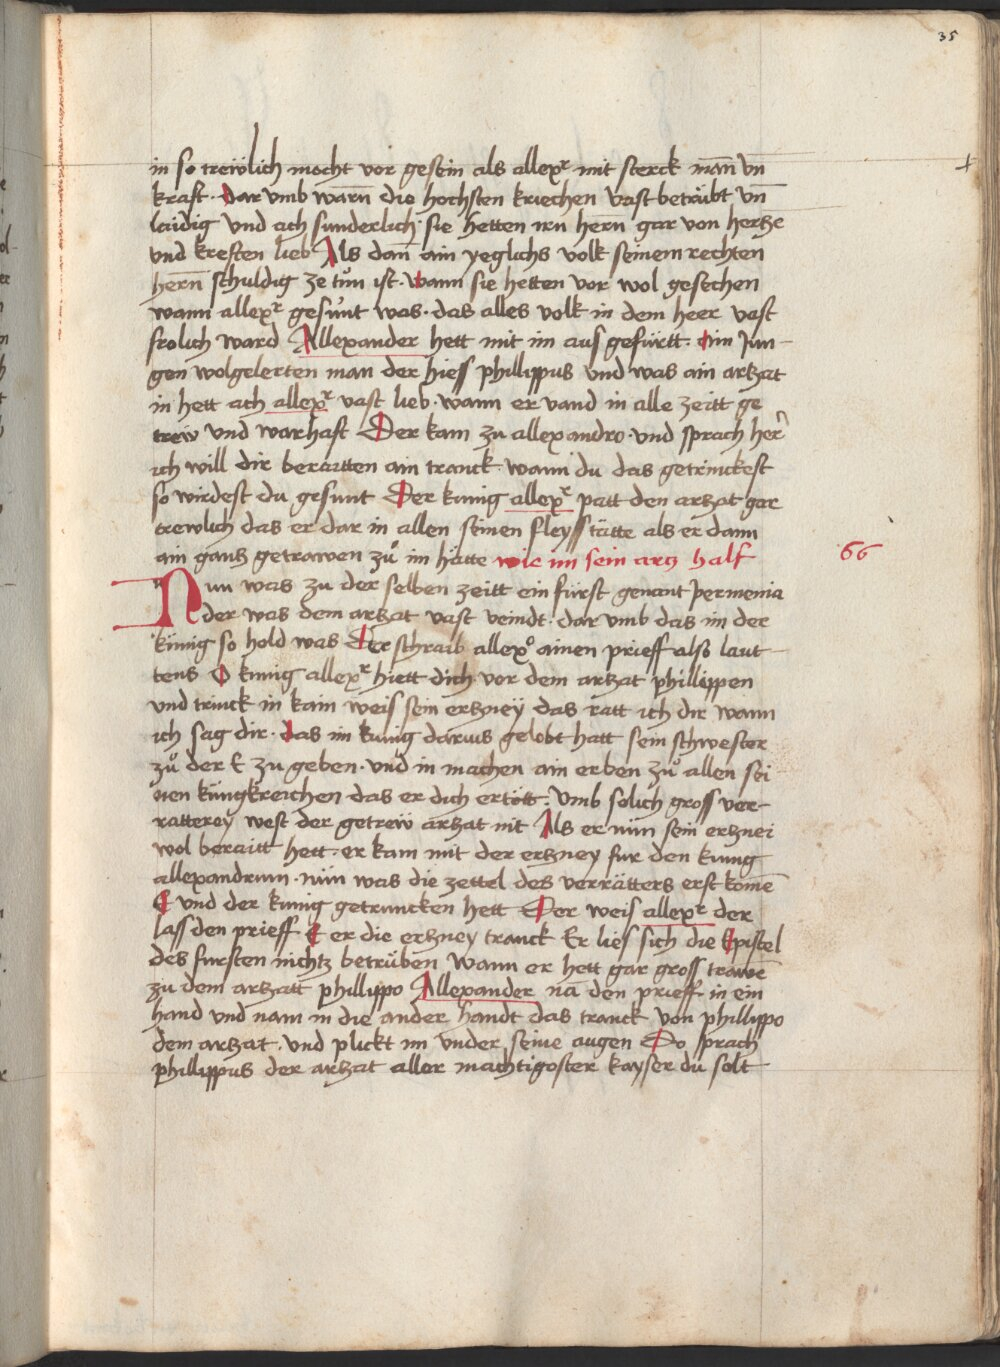 35
in so trewlich mocht vor gesein als allexr mit sterck man̄ vn̄
kraft · Dar vmb warn̄ die hochsten kriechen vast betrübt vn̄
laidig vnd ach sunderlich · sie hetten irn hern̄ gar von hertze
vnd kreften lieb Als dan̄ ain yeglichs volk seinem rechten
hern̄ schuldig ze tůn ist · Wann sie hetten vor wol gesechen
wann allexr gesunt was · das alles volk in dem heer vast
frolich ward Allexander hett mit im aus gefürtt · Ain Jun-
gen wolgelerten man der hiess phillippus vnd was ain artzat
in hett ach allexr vast lieb · wann er vand in alle zeitt ge
trew vnd warhaft Der kam zu allexandro · vnd sprach her
ich will dir beraitten ain tranck · wann du das getrinckest
so wirdest du gesunt Der kunig allexr patt den artzat gar
trewlich das er dar in allen seinen fleyss tätte als er dann
ain gantz getrawen zů im hätte wie im sein artz half
66
Nun was zu der selben zeitt ein fürst genant permenia
der was dem artzat vast veindt · dar vmb das im der
künig so hold was Der schraib allexo ainen prieff also laut-
tens O kunig allexr hiett dich vor dem artzat phillippen
vnd trinck in kain weis sein ertzneÿ das ratt ich dir wann
ich sag dir · das im kunig darius gelobt hatt sein schwester
zů der E zu geben · vnd in machen ain erben zů allen sei
nen küngkreichen das er dich ertött · Vmb solich gross ver-
ratterey west der getrew artzat nit Als er nün sein ertznei
wol beraitt hett · er kam mit der ertzney fur den kunig
allexandrum · nün was die zettel des verrätters erst komē
E vnd der kunig getruncken hett Der weis allexr der
lass den prieff E er die ertzney tranck Er lies sich die Epistel
des fursten nichtz betrüben Wann er hett gar gross trawē
zu dem artzatt phillippo Allexander nā den prieff in ein
hand vnd nam in die ander handt das tranck von phillippo
dem artzat · vnd plickt im vnder seine augen Do sprach
phillippus der artzat aller machtigoster kayser du solt